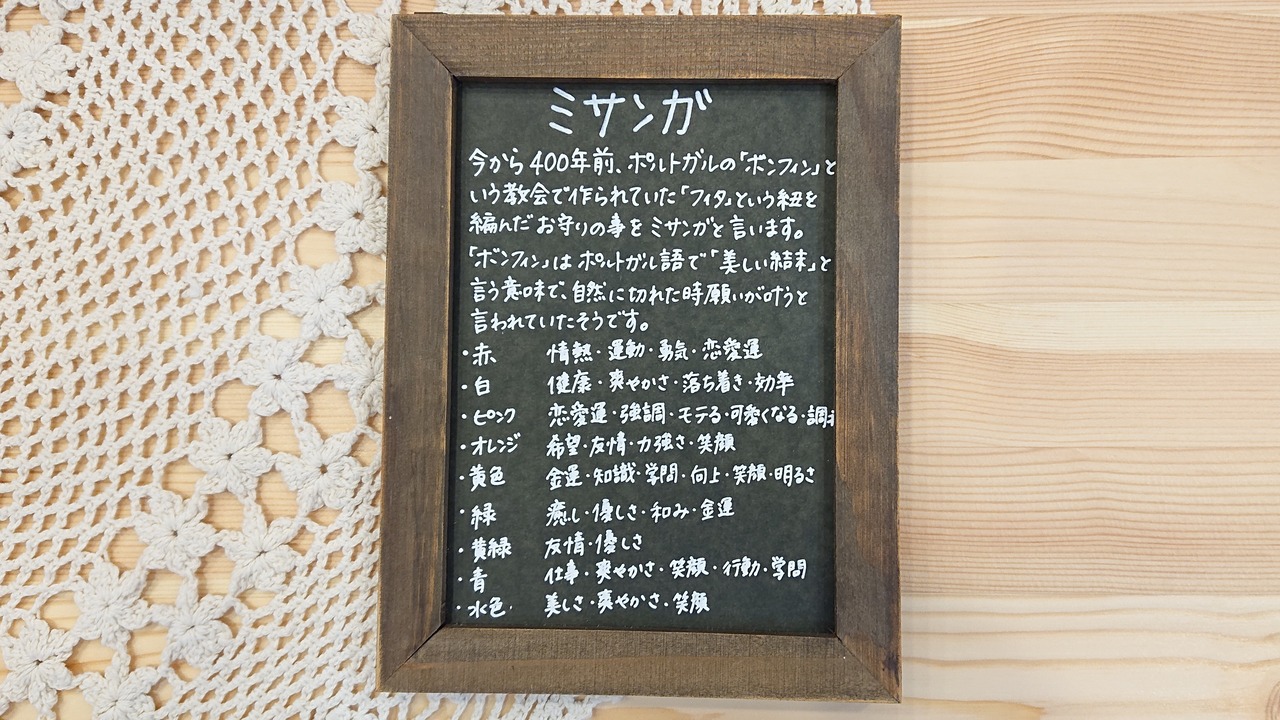 ミサンガ
今から400年前、ポルトガルの「ボンフィン」と
いう教会で作られていた「フィタ」という紐を
編んだお守りの事をミサンガと言います。
「ボンフィン」はポルトガル語で「美しい結末」と
言う意味で、自然に切れた時願いが叶うと
言われていたそうです。
・赤 情熱・運動・勇気・恋愛運
・白 健康・爽やかさ・落ち着き・効率
・ピンク 恋愛運・強調・モテる・可愛くなる・調
・オレンジ 希望・友情・力強さ・笑顔
・黄色 金運・知識・学問・向上・笑顔・明るさ
・緑 癒し・優しさ・和み・金運
・黄緑 友情・優しさ
・青 仕事・爽やかさ・笑顔・行動・学問
・水色 美しさ・爽やかさ・笑顔